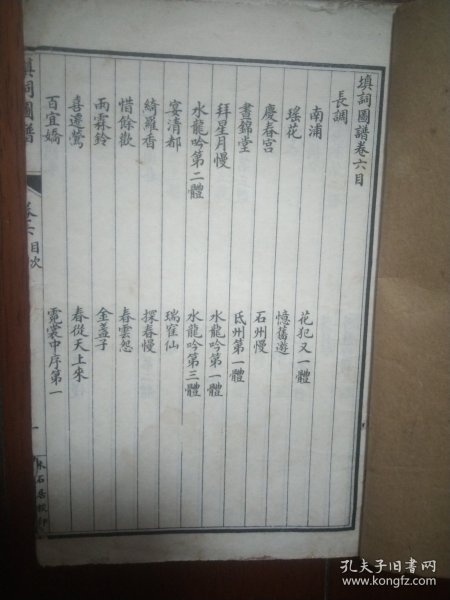 填詞圖譜卷六目
長調
南浦　花犯又一體
瑤花　憶舊遊
慶春宮　石州慢
晝錦堂　氐州第一體
拜星月慢　水龍吟第一體
水龍吟第二體　水龍吟第三體
宴清都　瑞窐仙
綺羅香　探春慢
惜餘歡　春雲怨
雨霖鈴　金盞子
喜遷鶯　春從天上來
百宜嬌　霓裳中序第一
填詞圖譜
卷六目次
一
木石居
孔夫子旧书网
www.kongfz.com